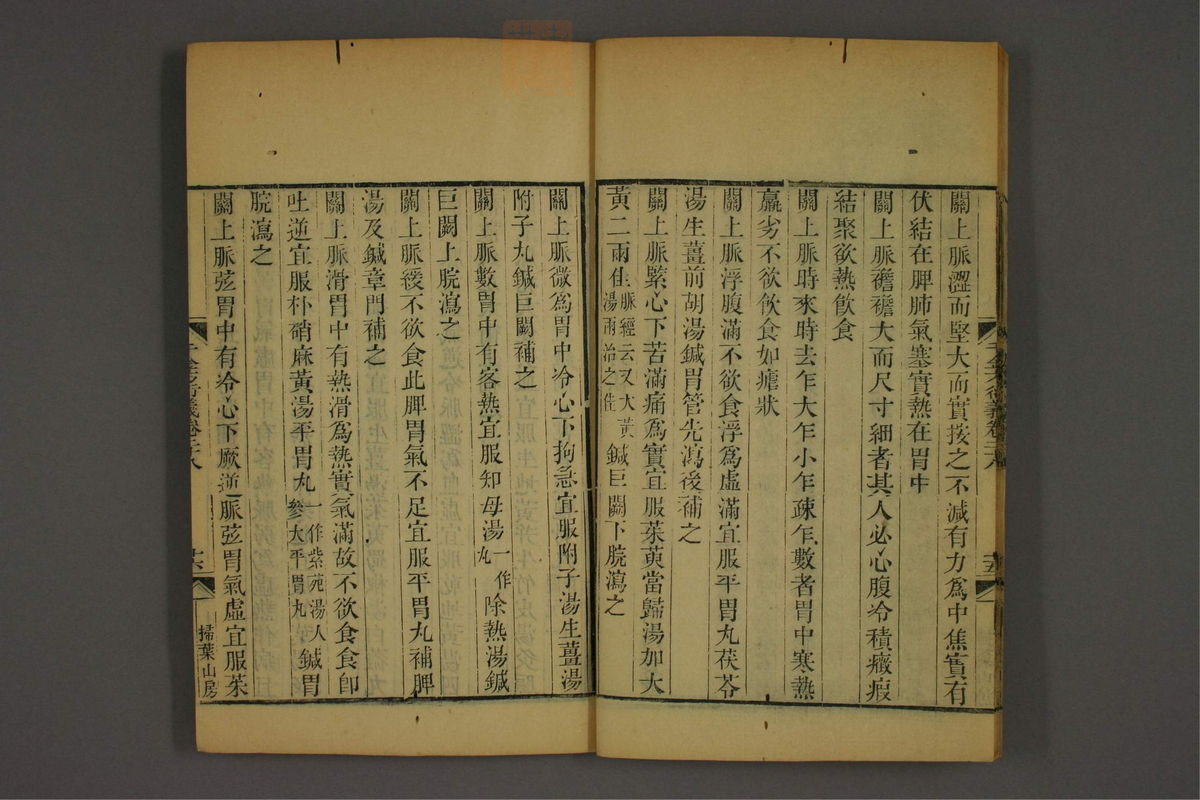 關上脈澀而堅大而實按之不減有力爲中焦實有
伏結在脾肺氣塞實熱在胃中
關上脈襜襜大而尺寸細者其人必心腹冷積癥瘕
結聚欲熱飲食
關上脈時來時去乍大乍小乍疎乍數者胃中寒熱
羸劣不欲飲食如瘧狀
關上脈浮腹滿不欲食浮爲虛滿宜服平胃丸茯苓
湯生薑前胡湯鍼胃管先瀉後補之
關上脈緊心下苦滿痛爲實宜服茱萸當歸湯加大
黃二兩佳脈經云又大黃湯兩治之佳鍼巨闕下脘瀉之
千金方衍義卷二十八
十五
關上脈微爲胃中冷心下拘急宜服附子湯生薑湯
附子丸鍼巨闕補之
關上脈數胃中有客熱宜服知母湯一作丸除熱湯鍼
巨闕上脘瀉之
關上脈緩不欲食此脾胃氣不足宜服平胃丸補脾
湯及鍼章門補之
關上脈滑胃中有熱滑爲熱實氣滿故不欲食食卽
吐逆宜服朴硝麻黃湯平胃丸一作紫菀湯人參大平胃丸鍼胃
脘瀉之
關上脈弦胃中有冷心下厥逆脈弦胃氣虛宜服茱
千金方衍義卷二十八
十六
掃葉山房